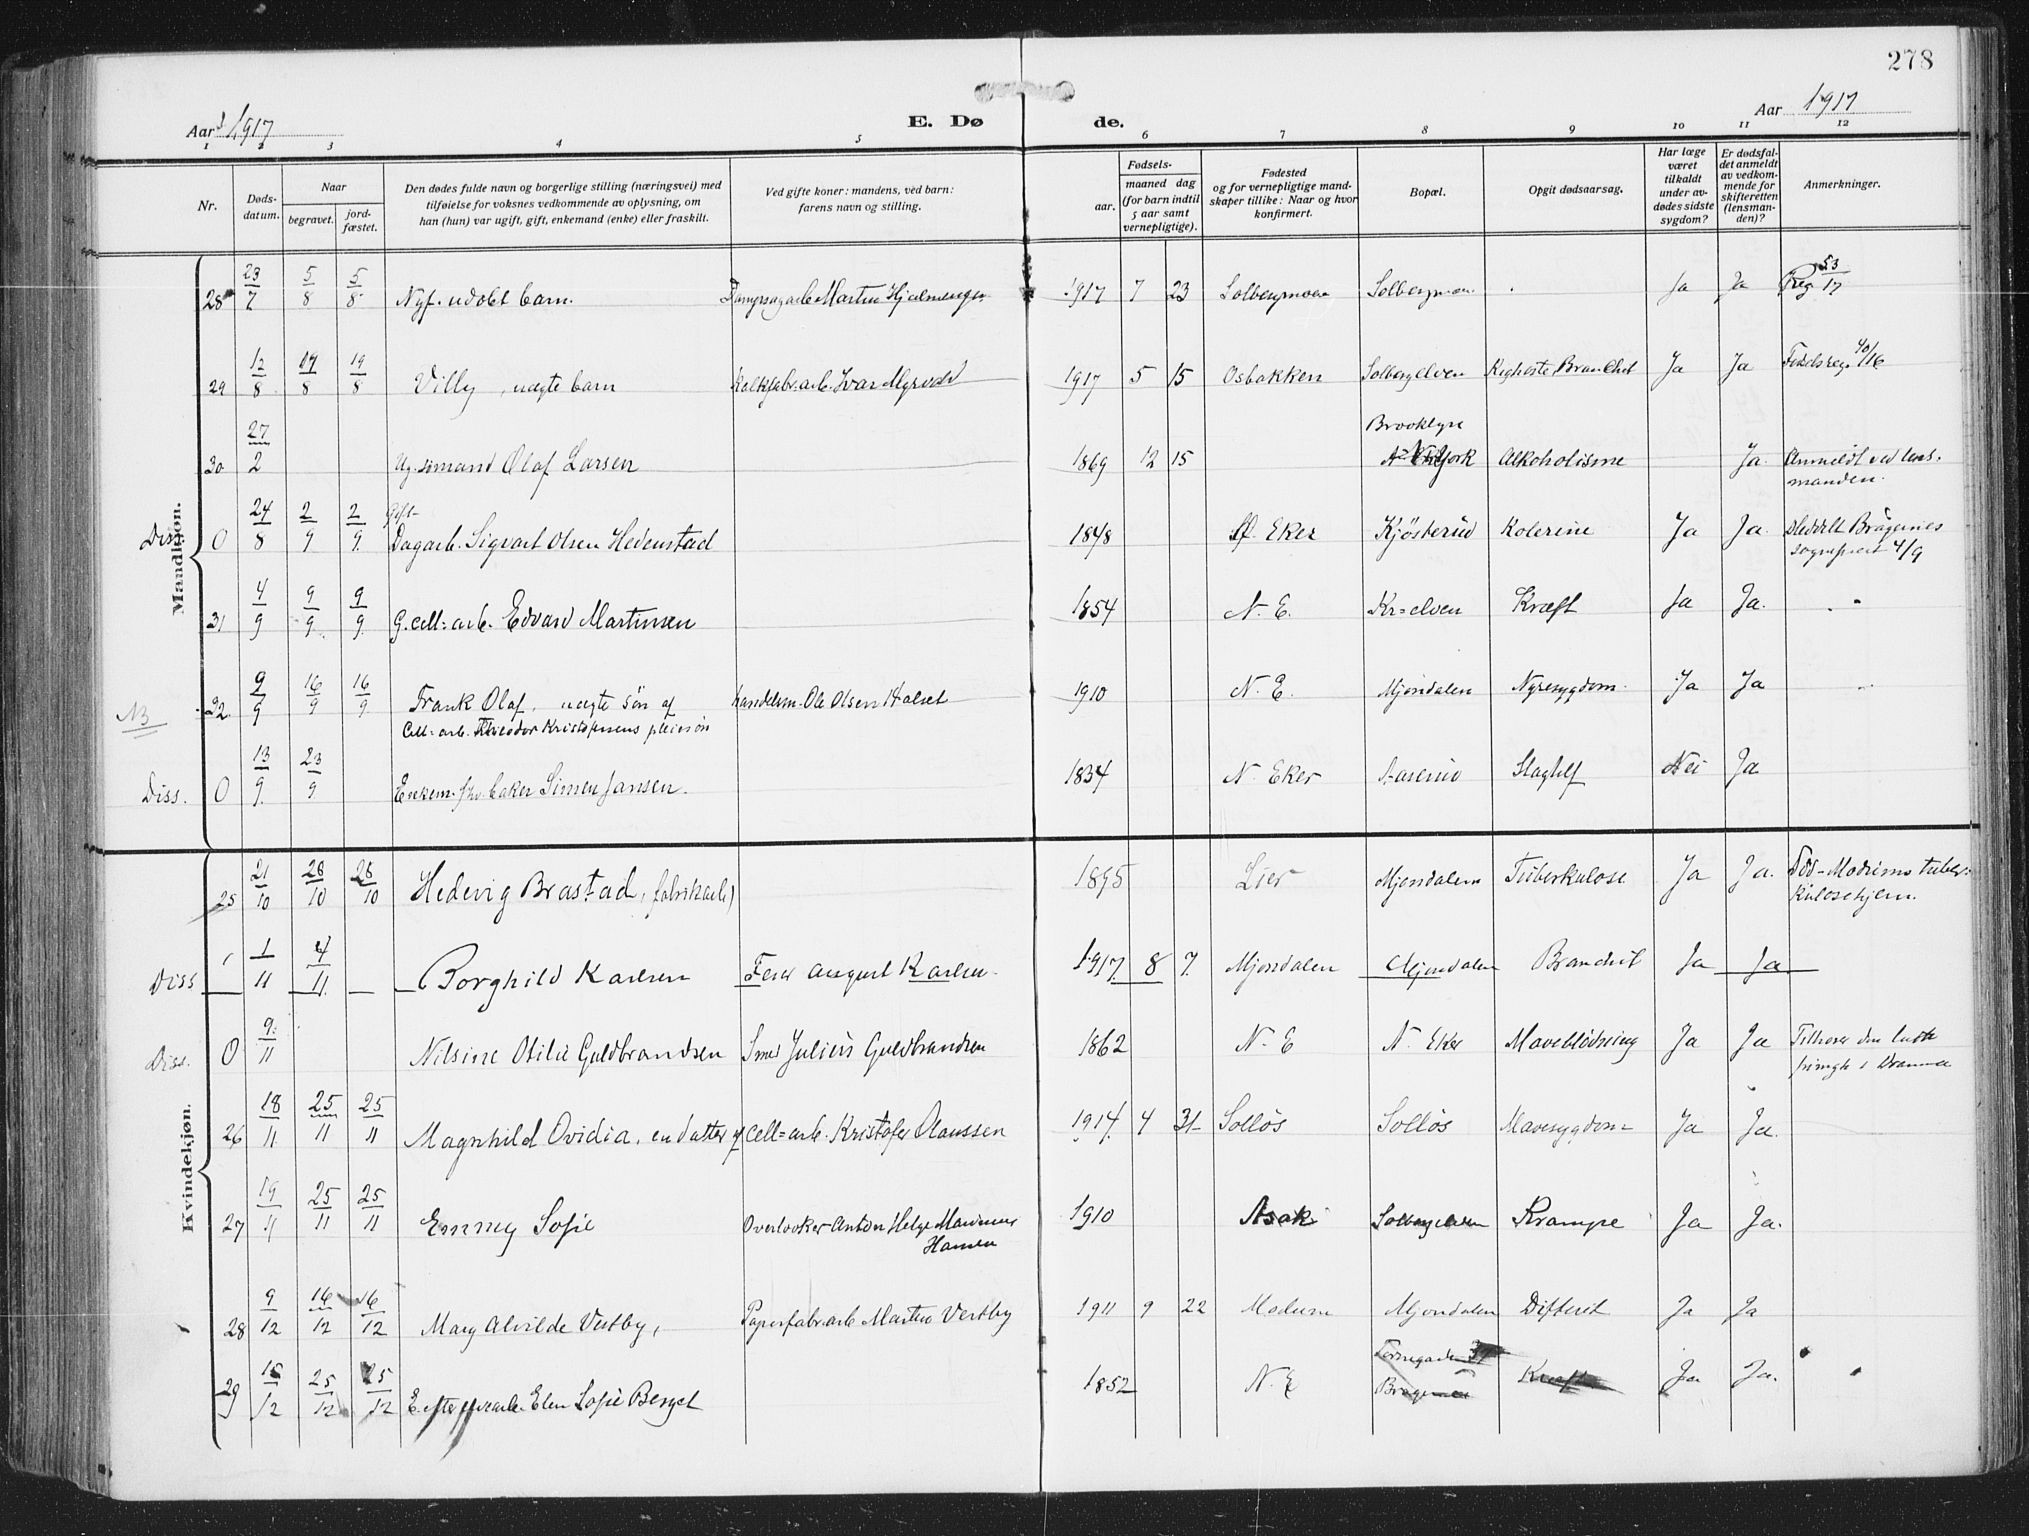 278
Aar 1917
E. Dø
de.
Aar 1917
1 2 3 4 5 6 7 8 9 10 11 12
Nr.
Døds-
datum.
Naar
begravet.
jord-
fæstet.
Den dødes fulde navn og borgerlige stilling (næringsvei) med
tilføielse for voksnes vedkommende av oplysning, om
han (hun) var ugift, gift, enkemand (enke) eller fraskilt.
Ved gifte koner: mandens, ved barn:
farens navn og stilling.
Fødsels-
aar.
maaned dag
(for barn indtil
5 aar samt
vernepligtige).
Fødested
og for vernepligtige mand-
skaper tillike: Naar og hvor
konfirmert.
Bopæl.
Opgit dødsaarsag.
Har læge
været
tilkaldt
under av-
dødes sidste
sygdom?
Er dødsfal-
det anmeldt
av vedkom-
mende for
skifteretten
(lensman-
den)?
Anmerkninger.
Mandkjøn.
28 23/7 5/8 5/8 Nyf. udøbt barn. Martin 1917 7 23 Solbergmoen Solbergmoen Ja Ja Reg 53/17
29 12/8 19/8 Villy, ægte barn Ivar Myrvold 1917 5 15 Osbakken Solbergelven Ja Ja 40/16
Brooklyn
30 27/2 Ug. sømand Olaf Larsen 1869 12 15 Alkoholisme Ja. Anmeldt ved lens-
manden.
Gift
Diss. 0 24/8 2/9 2/9 Dagarb. Sigvart Olsen Hedenstad 1848 Ø. Eker Kjøsterud Kolerine Ja Ja. Bragernes
4/9
31 4/9 9/9 9/9 G. cell=arb. Edvard Martinsen 1854 N. E. Kr=elven Kræft Ja Ja. "
NB 32 9/9 16/9 16/9 Frank Olaf, ægte søn af handelsm. Ole Olsen Halset 1910 N. E. Mjøndalen Nyresygdom. Ja Ja "
Cell=arb. Theodor Kristofersens pleiesøn
Diss. 0 13/9 23/9 Enkem. Simen Jansen. 1834 N. Eker Aaserud Slagtilf Nei Ja
Kvindekjøn.
25 21/10 28/10 28/10 Hedevig Brastad, fabrikarb) 1895 Lier Mjøndalen Tuberkulose Ja Ja. Død Modums tuber-
kulosehjem.
Diss 1/11 4/11 Borghild Karlsen August Karlsen 1917 8 7 Mjøndalen Mjøndalen Ja Ja
Diss. 0 9/11 Nilsine Otilie Guldbrandsen Smed Julius Guldbrandsen 1862 N. E N. Eker Maveblødning Ja Ja Tilhører den luth
frimgh i Drammen
26 18/11 25/11 25/11 Magnhild Ovidia, en datter af cell=arb. Kristofer Olaussen 1914 4 31 Solløs Solløs Mavesygdom Ja Ja.
27 19/11 25/11 25/11 Emmy Sofie Overlooker Anton Helge 1910 Asak Solbergelven Krampe Ja Ja.
Hansen
28 9/12 16/12 16/12 Mary Alvilde Vestby, Papirfabr.arb Martin Vestby 1911 9 22 Modum Mjøndalen Difterit Ja Ja
29 25/12 25/12 Elen Sofie 1852 N. E Kræft Ja Ja.